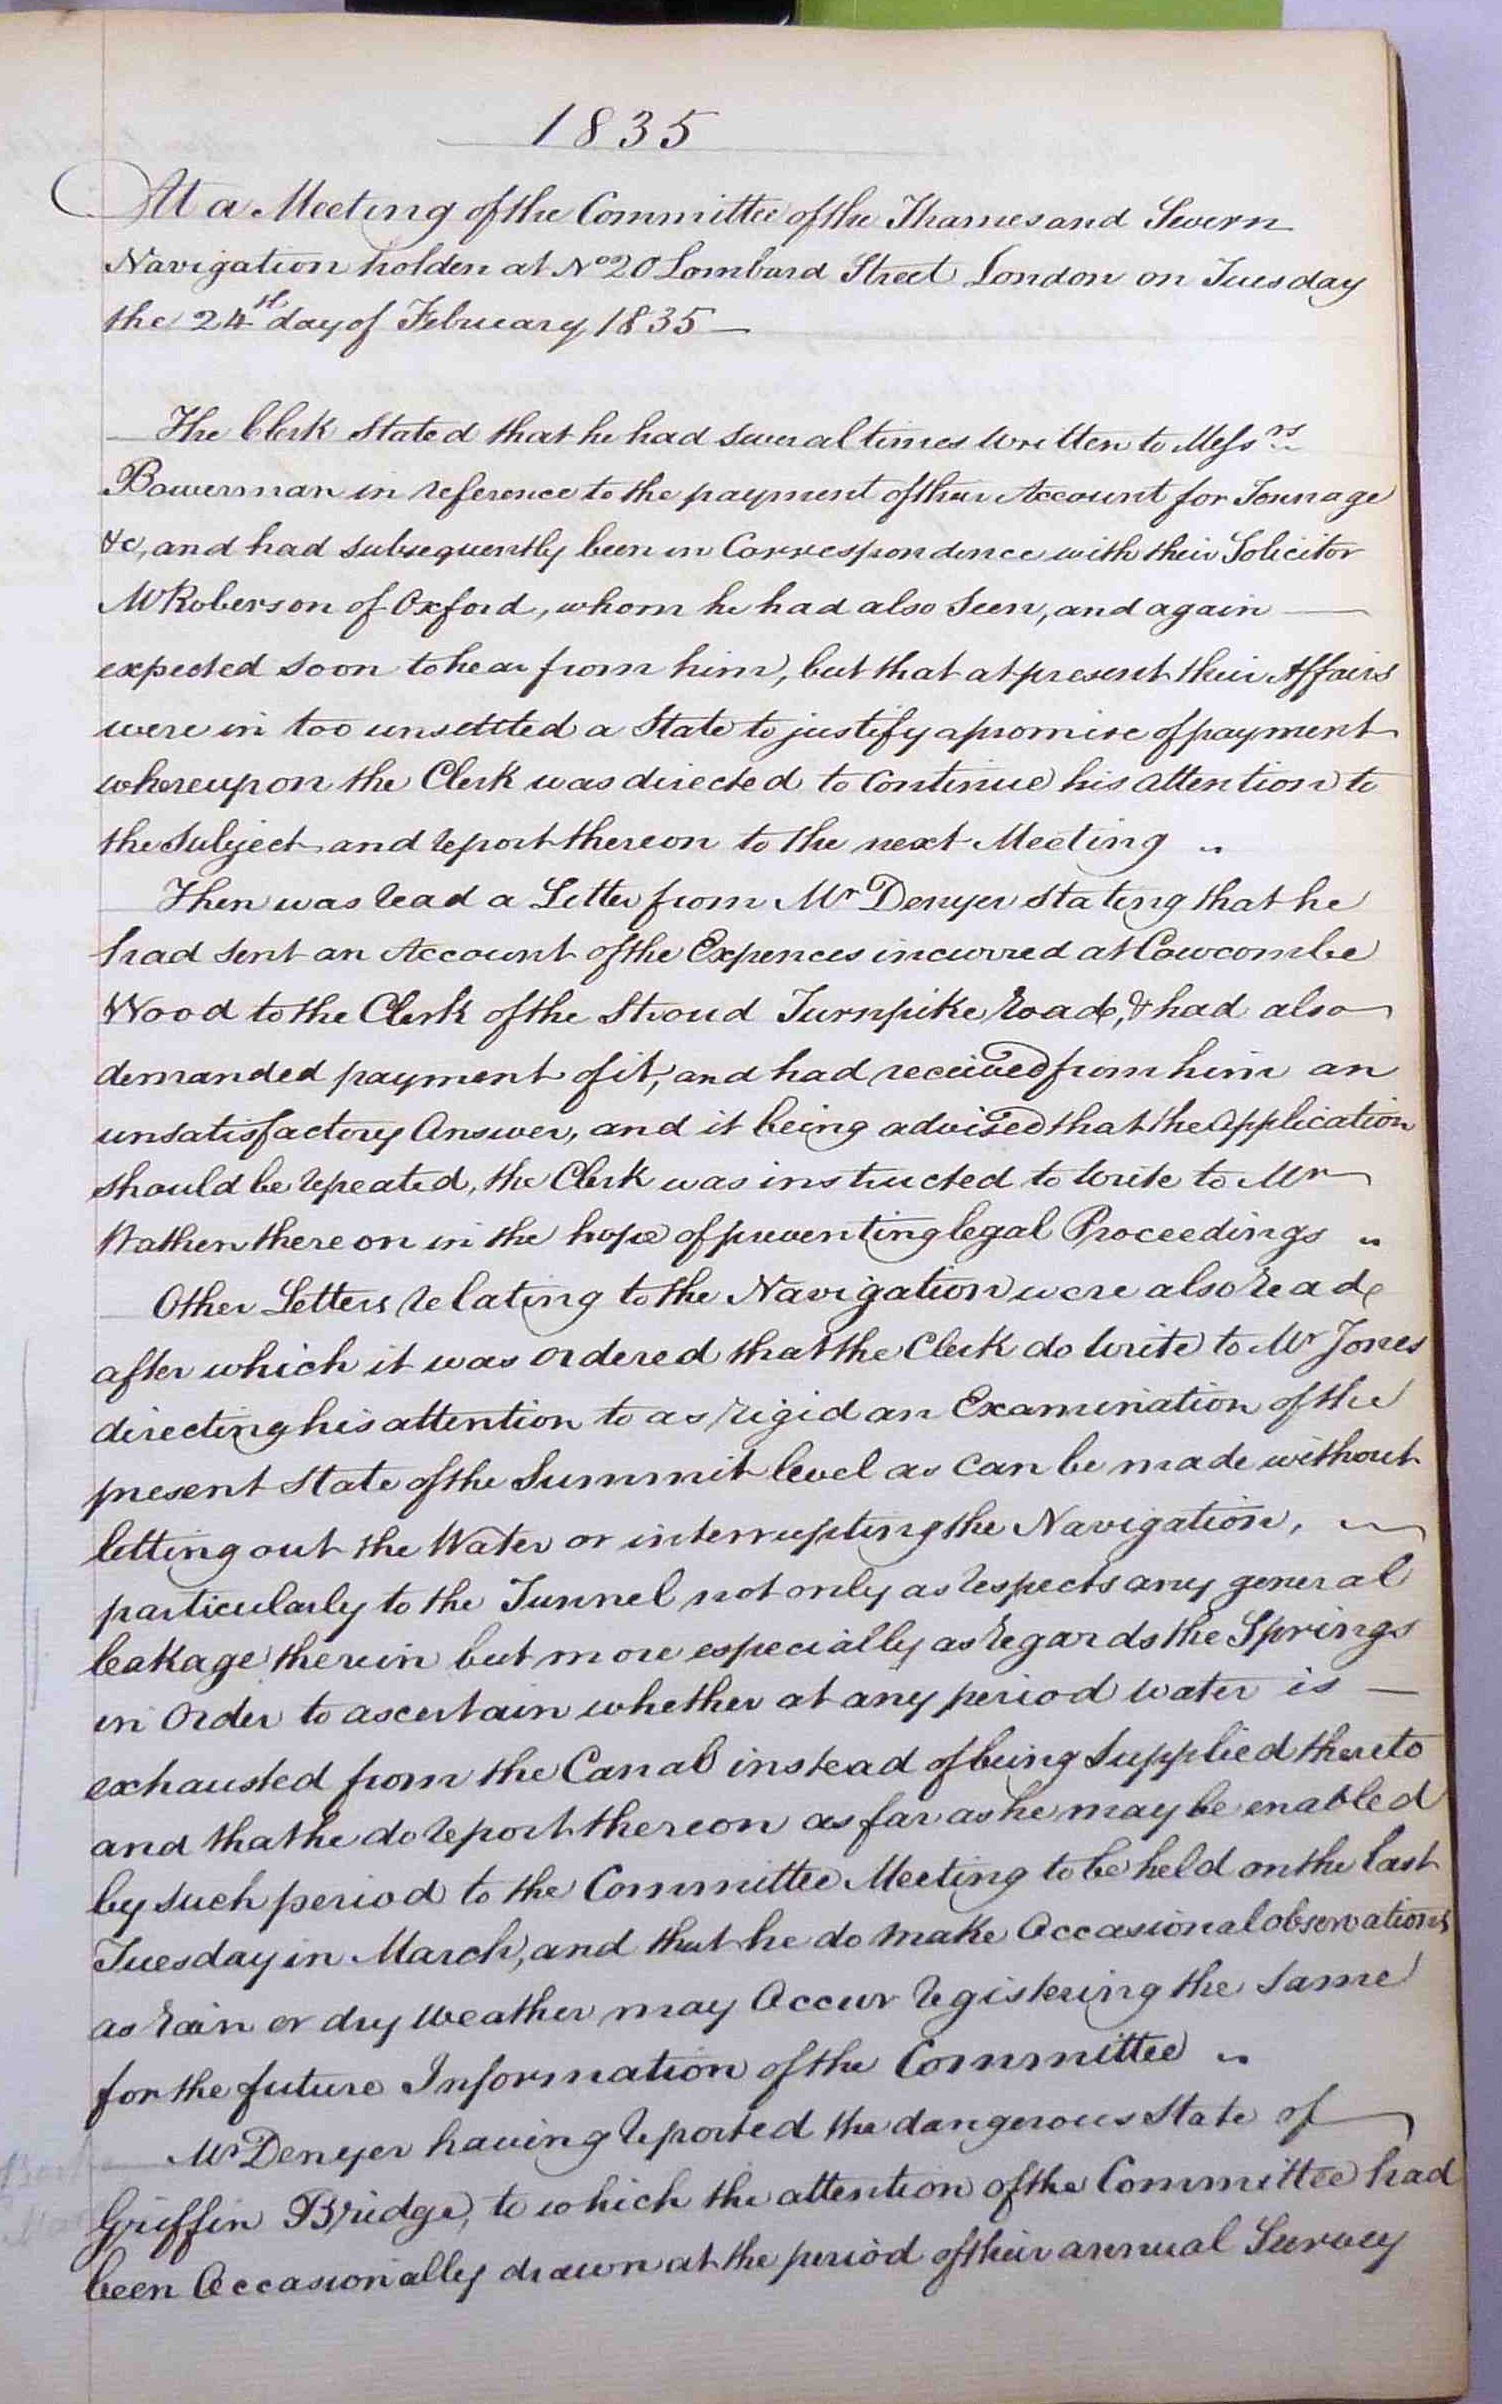 1835
At a Meeting of the Committee of the Thames and Severn
Navigation holden at No 20 Lombard Street London on Tuesday
the 24th day of February 1835 —
The Clerk stated that he had several times written to Messrs
Bowerman in reference to the payment of their Account for Tonnage
&c, and had subsequently been in Correspondence with their Solicitor
Mr Roberson of Oxford, whom he had also seen, and again —
expected soon to hear from him, but that at present their Affairs
were in too unsettled a State to justify a promise of payment
whereupon the Clerk was directed to continue his attention to
the Subject and report thereon to the next Meeting "
Then was read a Letter from Mr Denyer stating that he
had sent an Account of the Expences incurred at Cowcombe
Wood to the Clerk of the Stroud Turnpike Road, & had also
demanded payment of it, and had received from him an
unsatisfactory Answer, and it being advised that the Application
should be repeated, the Clerk was instructed to write to Mr
Wathen thereon in the hope of preventing legal Proceedings "
Other Letters relating to the Navigation were also read
after which it was ordered that the Clerk do write to Mr Jones
directing his attention to as rigid an Examination of the
present state of the Summit level as can be made without
letting out the Water or interrupting the Navigation,
particularly to the Tunnel not only as respects any general
leakage therein but more especially as regards the Springs
in order to ascertain whether at any period water is —
exhausted from the Canal instead of being Supplied thereto
and that he do report thereon as far as he may be enabled
by such period to the Committee Meeting to be held on the last
Tuesday in March, and that he do make Occasional observations
as rain or dry weather may Occur registering the same
for the future Information of the Committee "
Mr Denyer having reported the dangerous State of
Griffin Bridge, to which the attention of the Committee had
been Occasionally drawn at the period of their annual Survey